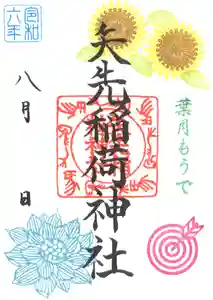 葉月もうで
矢先稲荷神社
令和
六年
八月
日